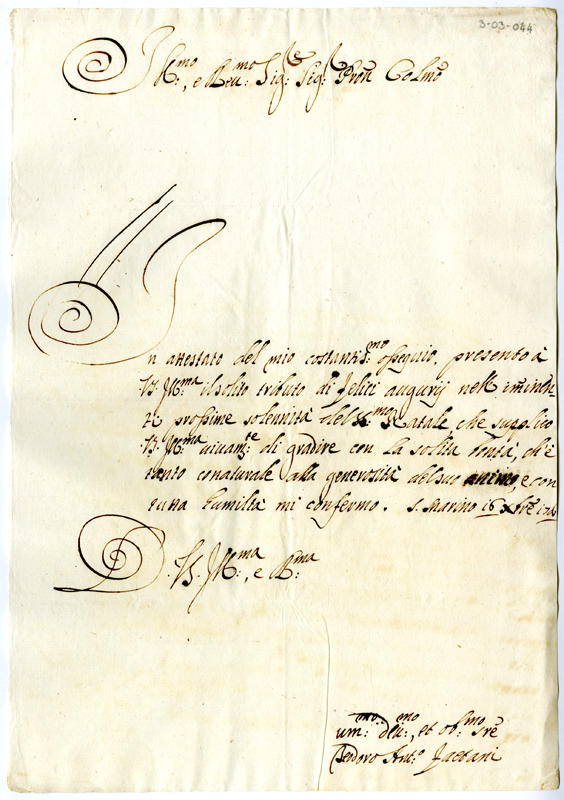 3-03-044
Ill:mo, e Reu:mo Sig:re Sig:re Pron Colmo
In attestato del mio costantis:mo ossequio, presento à
V.S. Ill:ma il solito tributo di felici augurij nell'imminen-
ti prossime solennità del S:mo Natale, che supplico
V.S. Ill:ma viuam:te di gradire con la solita bontà, ch'è
tanto conaturale alla generosità del suo animo, e con
tutta humiltà mi confermo. S. Marino 16 Xbre
D. V.S. Ill:ma, e R:ma
um:mo deu:mo, et ob:mo sre
Teodoro Ant.o Gaetani